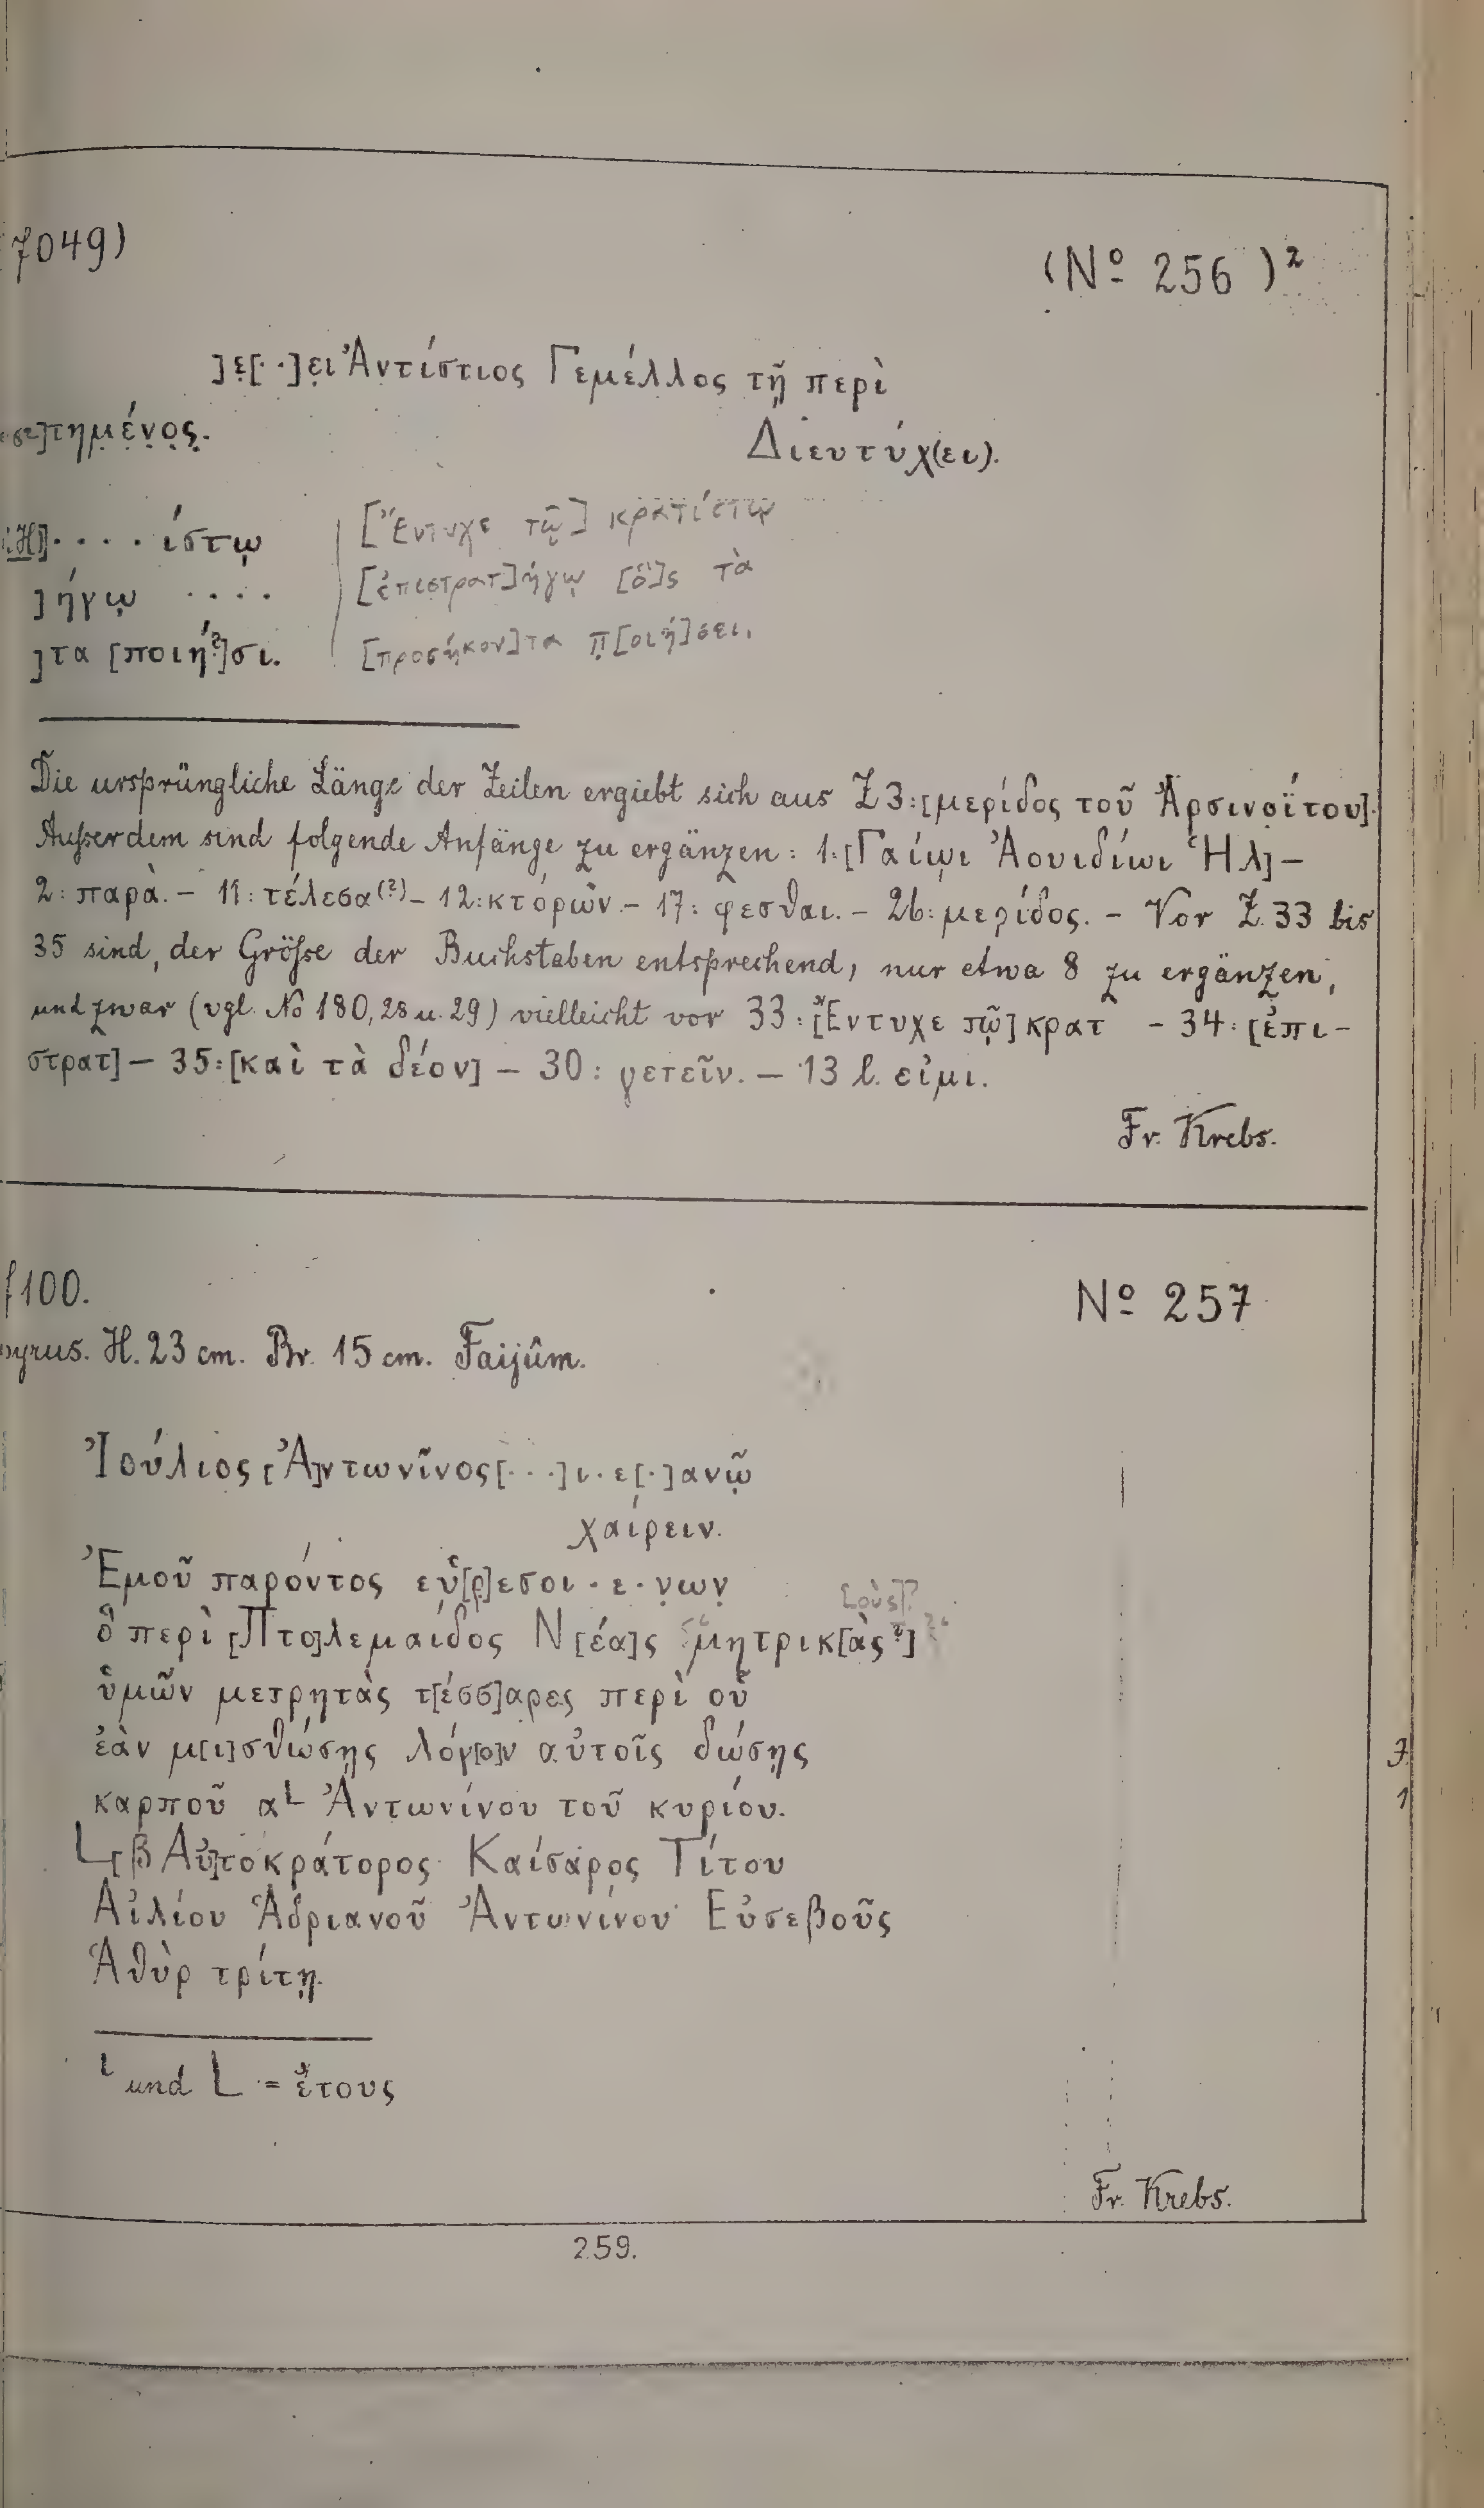 7049)
(No 256)²
]ε̣[··]ε̣ι Ἀντίστιος Γεμέλλος τῇ περὶ
]τημένος.
Διευτύχ(ει).
···· ίστῳ
[Ἔντυχε τῷ] κρατίστῳ
]ήγῳ ····
[ἐπιστρατ]ήγῳ [ὅ]ς τὰ
]τα [ποιή?]σι.
[προσήκον]τα π[οιή]σει.
Die ursprüngliche Länge der Zeilen ergiebt sich aus Z 3: [μερίδος τοῦ Ἀρσινοΐτου].
Außerdem sind folgende Anfänge zu ergänzen: 1: [Γαίωι Ἀουιδίωι Ἡλ] –
2: παρὰ. – 11: τέλεσα(?) – 12: κτόρων. – 17: φεσθαι. – 26: μερίδος. – Vor Z. 33 bis
35 sind, der Größe der Buchstaben entsprechend, nur etwa 8 zu ergänzen,
und zwar (vgl. No 180, 28 u. 29) vielleicht vor 33: [Ἔντυχε τῷ] κρατ – 34: [ἐπι–
στρατ] – 35: [καὶ τὰ δέον] – 30: γετεῖν. – 13 l. εἰμι.
Fr. Krebs.
100.
No 257
pyrus. H. 23 cm. Br. 15 cm. Faijûm.
Ἰούλιος [Ἀ]ντωνῖνος [···]ι·ε[·]ανῷ
χαίρειν.
Ἐμοῦ παρόντος εὑ[ρ]εσοι·ε·νων
[οὺς]?
ὃ περὶ [Πτο]λεμαίδος Ν[έα]ς μητρικ[ὰς?]
ὑμῶν μετρητὰς τ[έσσ]αρες περὶ οὗ
ἐὰν μ[ι]σθώσῃς λόγ[ο]ν αὐτοῖς δώσῃς
καρποῦ α L Ἀντωνίνου τοῦ κυρίου.
L [β Αὐ]τοκράτορος Καίσαρος Τίτου
Αἰλίου Ἁδριανοῦ Ἀντωνίνου Εὐσεβοῦς
Ἁθὺρ τρίτῃ.
L und L = ἔτους
Fr. Krebs.
259.